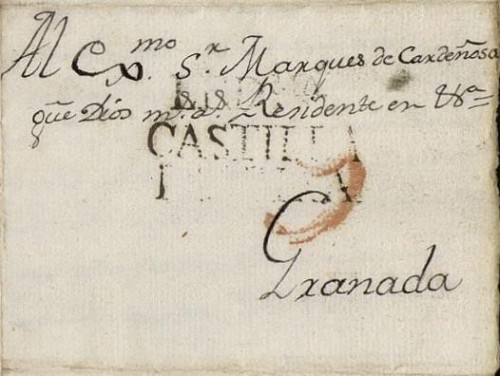 Al Exmo. Sr. Marques de Cardeñosa
que Dios m. a. Residente en
CASTILLA
Granada